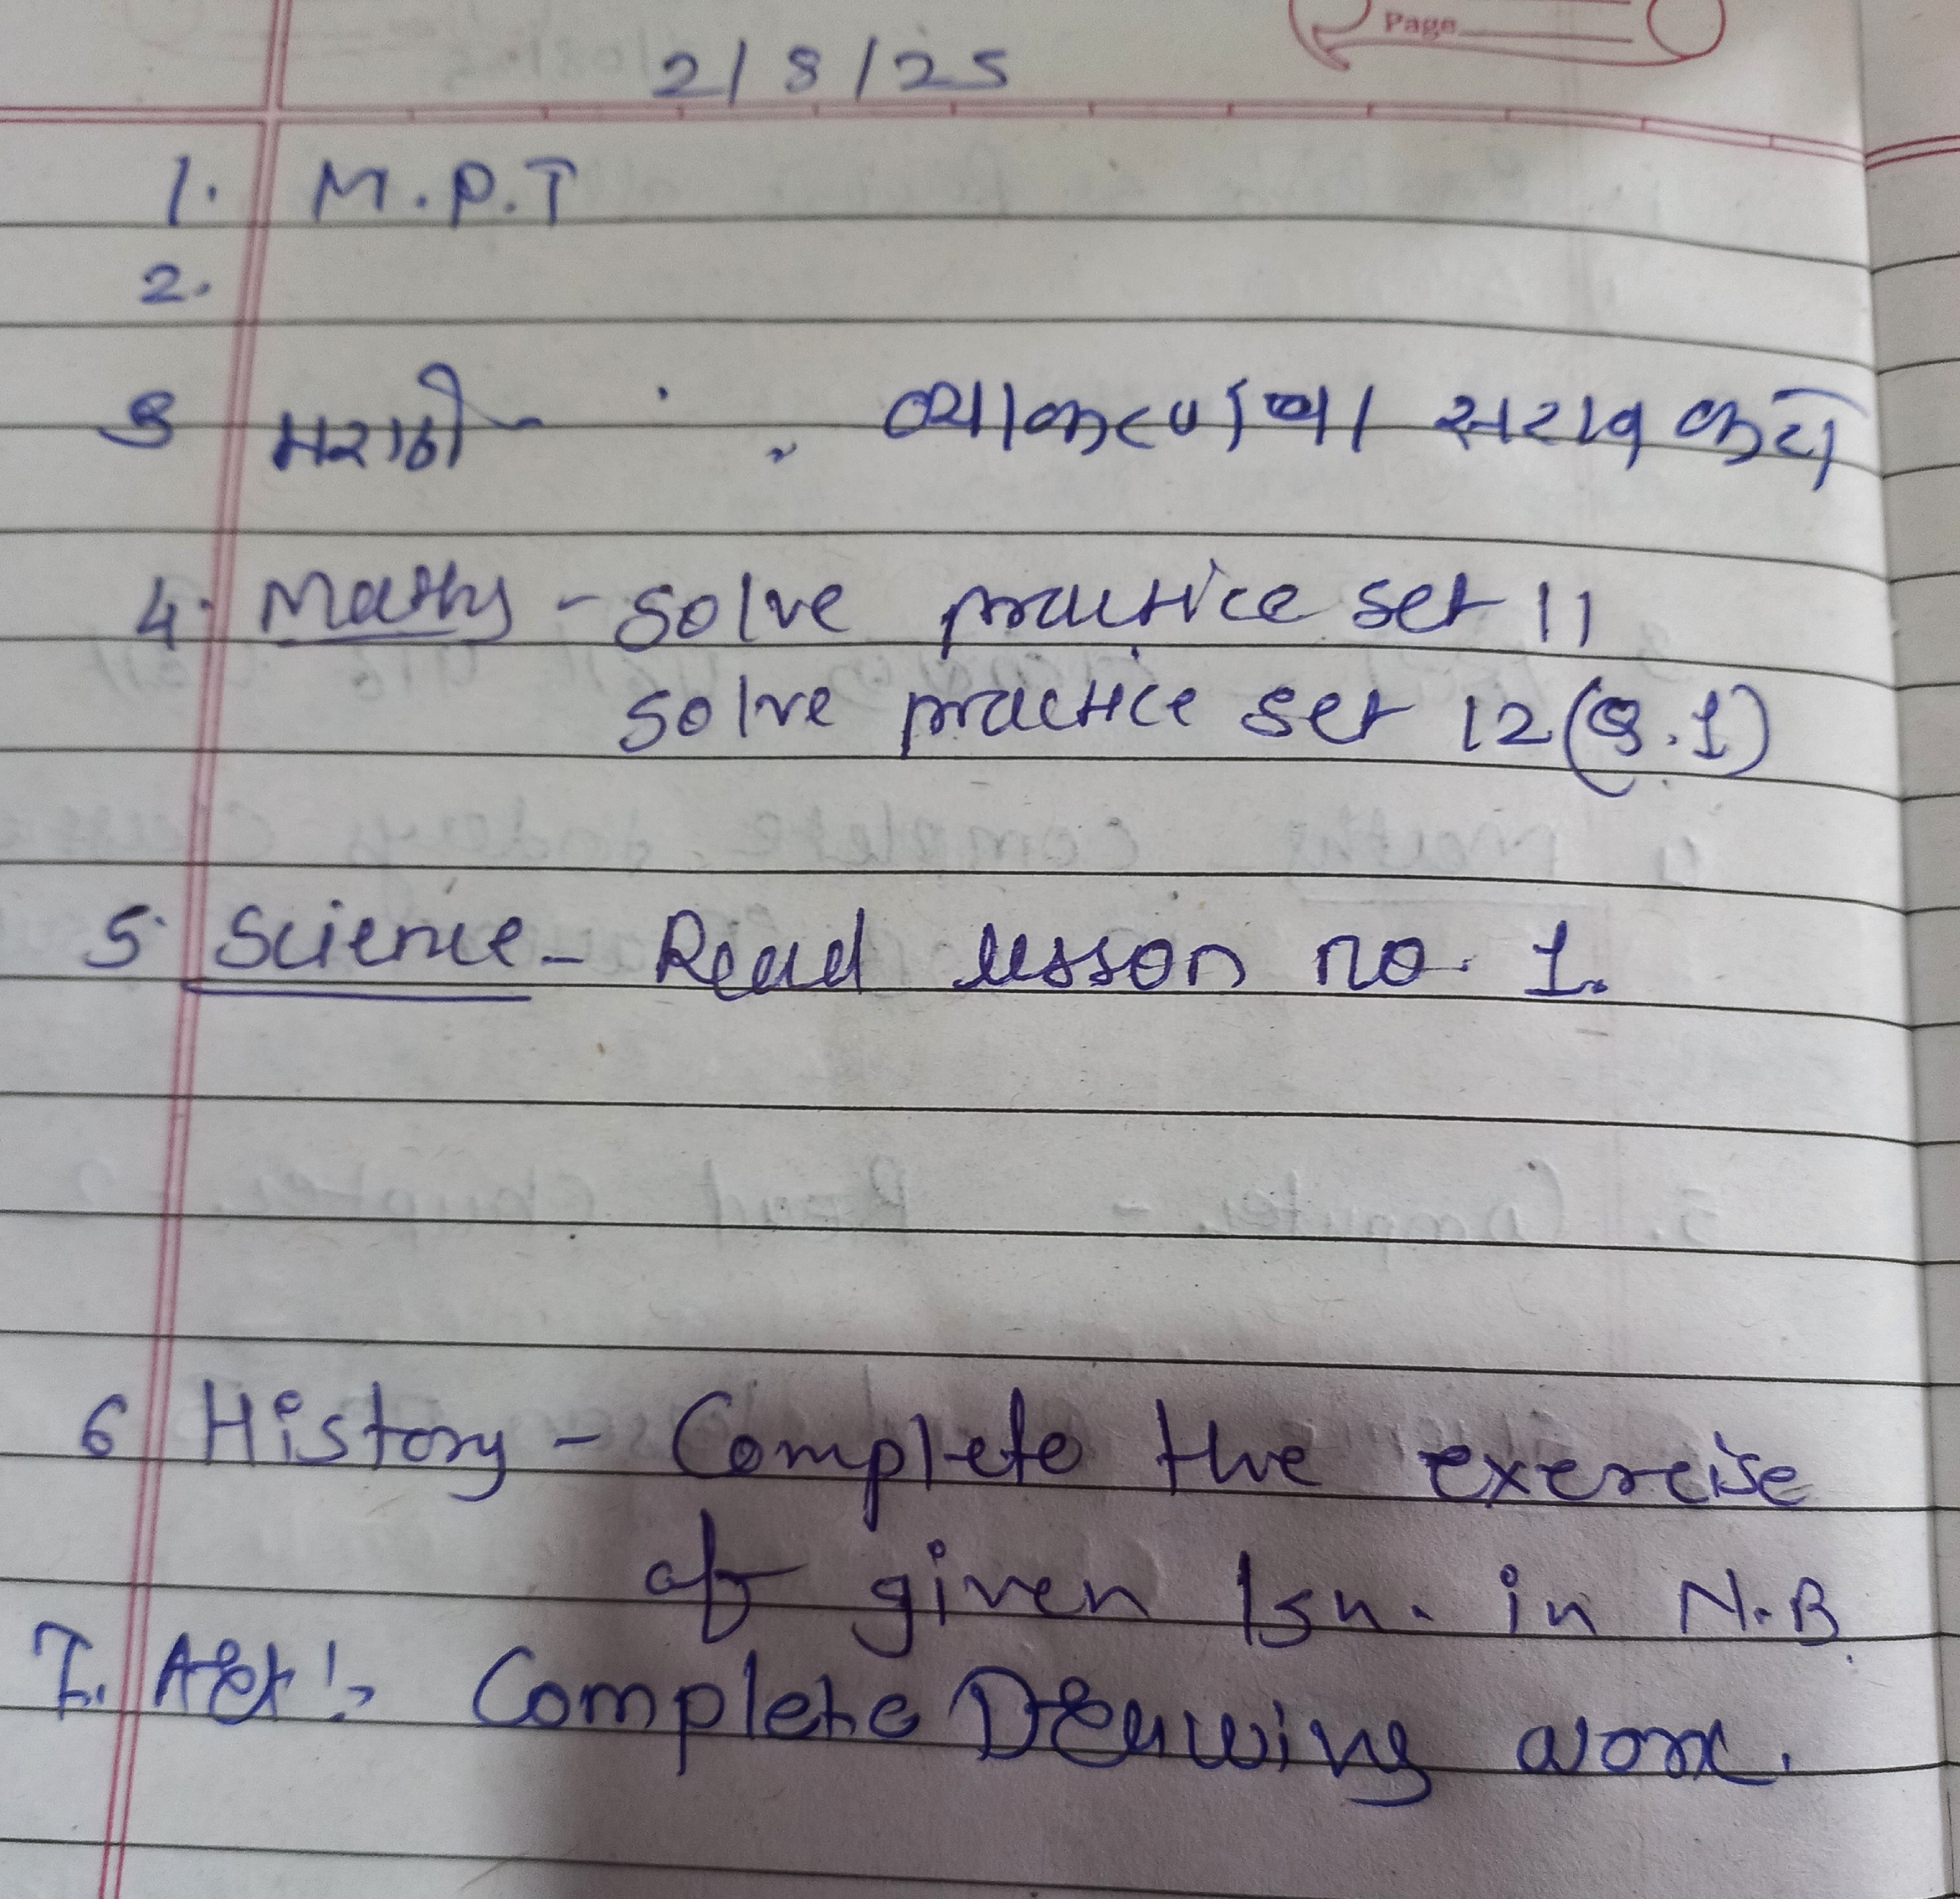 Page
2/8/25
1. M.P.T
2.
3 मराठी - व्याकरणाचा सराव करा
4. Maths - solve practice set 11
solve practice set 12 (Q.1)
5. Science - Read lesson no. 1.
6 History - Complete the exercise
of given lsn. in N.B.
7. Art :- Complete Drawing work.